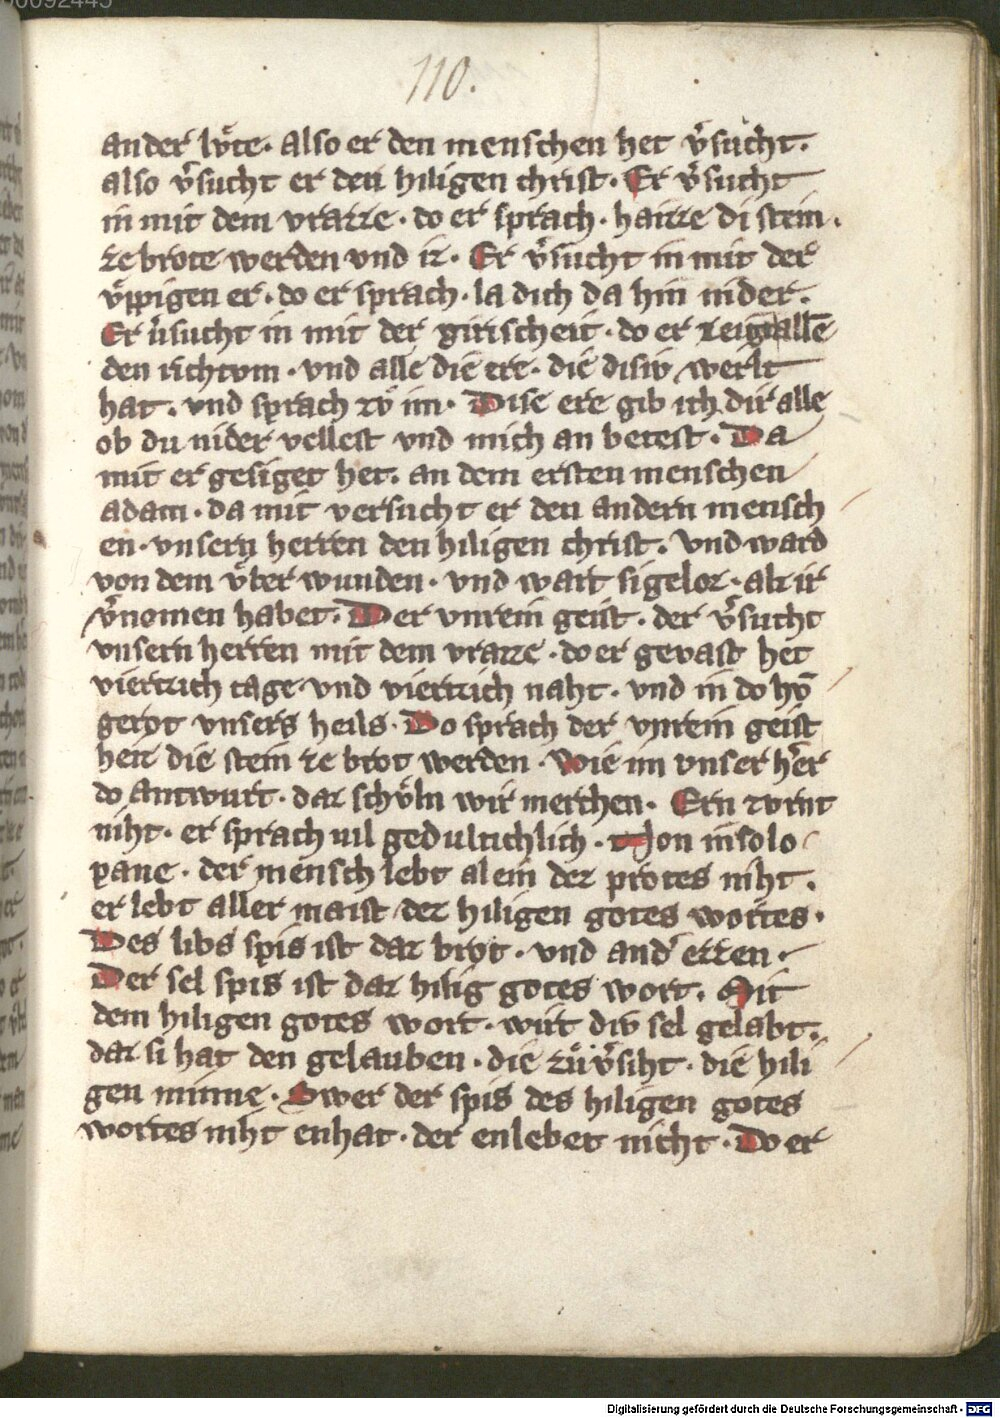 110.
ander lv̊te· also er den menschen het v̓sůcht.
also v̓sůcht er den hiligen christ· Er v̓sůcht
in mit dem vrazze· do er sprach· haizze di stein.
ze brote werden vnd iz· Er v̓sůcht in mit der
v̓ppigen er· do er sprach· la dich da hin nider.
Er v̓sucht in mit der girischeit· do er zeigt allē
den richtvm· vnd alle die ere· die disiv werlt
hat· vnd sprach zv̊ im· Dise ere gib ich dir alle
ob du nider vellest vnd mich an betest· Da
mit er gesiget het· an dem ersten menschen
adam· da mit versucht er den andern mensch
en· vnsern herren den hiligen christ· Vnd ward
von dem v̊ber wunden· vnd wart sigeloz· alz ir
v̓nomen habet· Der vnrein geist· der v̓sucht
vnsern herren mit dem vrazze· do er gevast het
vierzzich tage vnd vierzzich naht· vnd in do hv̄
gerot vnsers heils· Do sprach der vnrein geist
heit die stein ze brot werden· Wie im vnser h̓er
do antwurt· daz schv̊ln wir merchen· Ern zvrnt
niht· er sprach uil gedultichlich· Non in solo
pane· der mensch lebt alein dez protes niht.
er lebt aller maist dez hiligen gotes wortes·
Des libs spis ist daz brot· vnd and̓ ezzen·
Der sel spis ist daz hilig gotes wort· Mit
dem hiligen gotes wort· wirt div sel gelabt·
daz si hat den gelauben· die zův̓siht· die hili
gen minne· Swer der spis des hiligen gotes
wortes niht enhat· der enlebet nicht· Do er
Digitalisierung gefördert durch die Deutsche Forschungsgemeinschaft · DFG